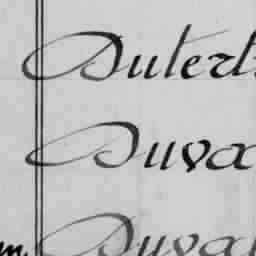 Dutert
Duva
m. Duva